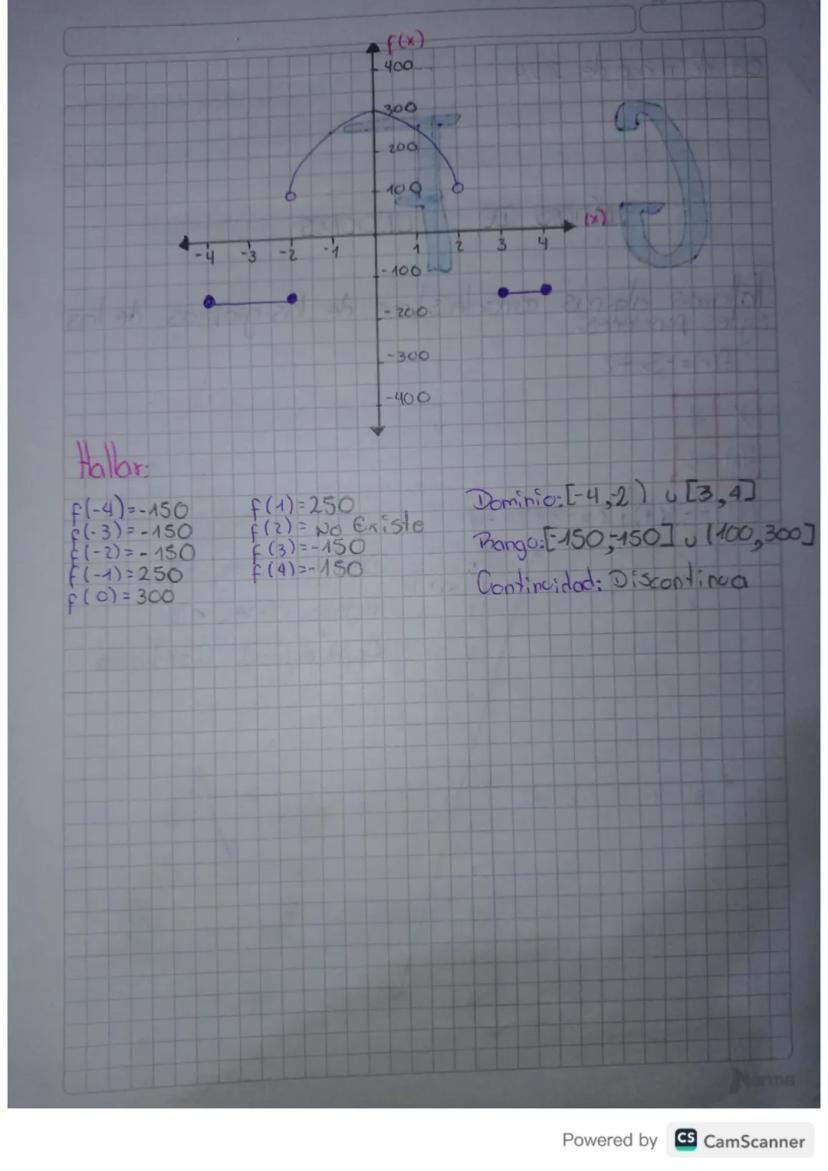 f(x)
400
300
200
100
(x)
-4 -3 -2 -1 1 2 3 4
-100
-200
-300
-400
Hallar:
f(-4)=-150
f(-3)=-150
f(-2)=-150
f(-1)=250
f(0)=300
f(1)=250
f(2)= No Existe
f(3)=-150
f(4)=-150
Dominio:[-4,-2) ∪ [3,4]
Rango:[-150,-150] ∪ (100,300]
Continuidad: Discontinua
Norma
Powered by CS CamScanner